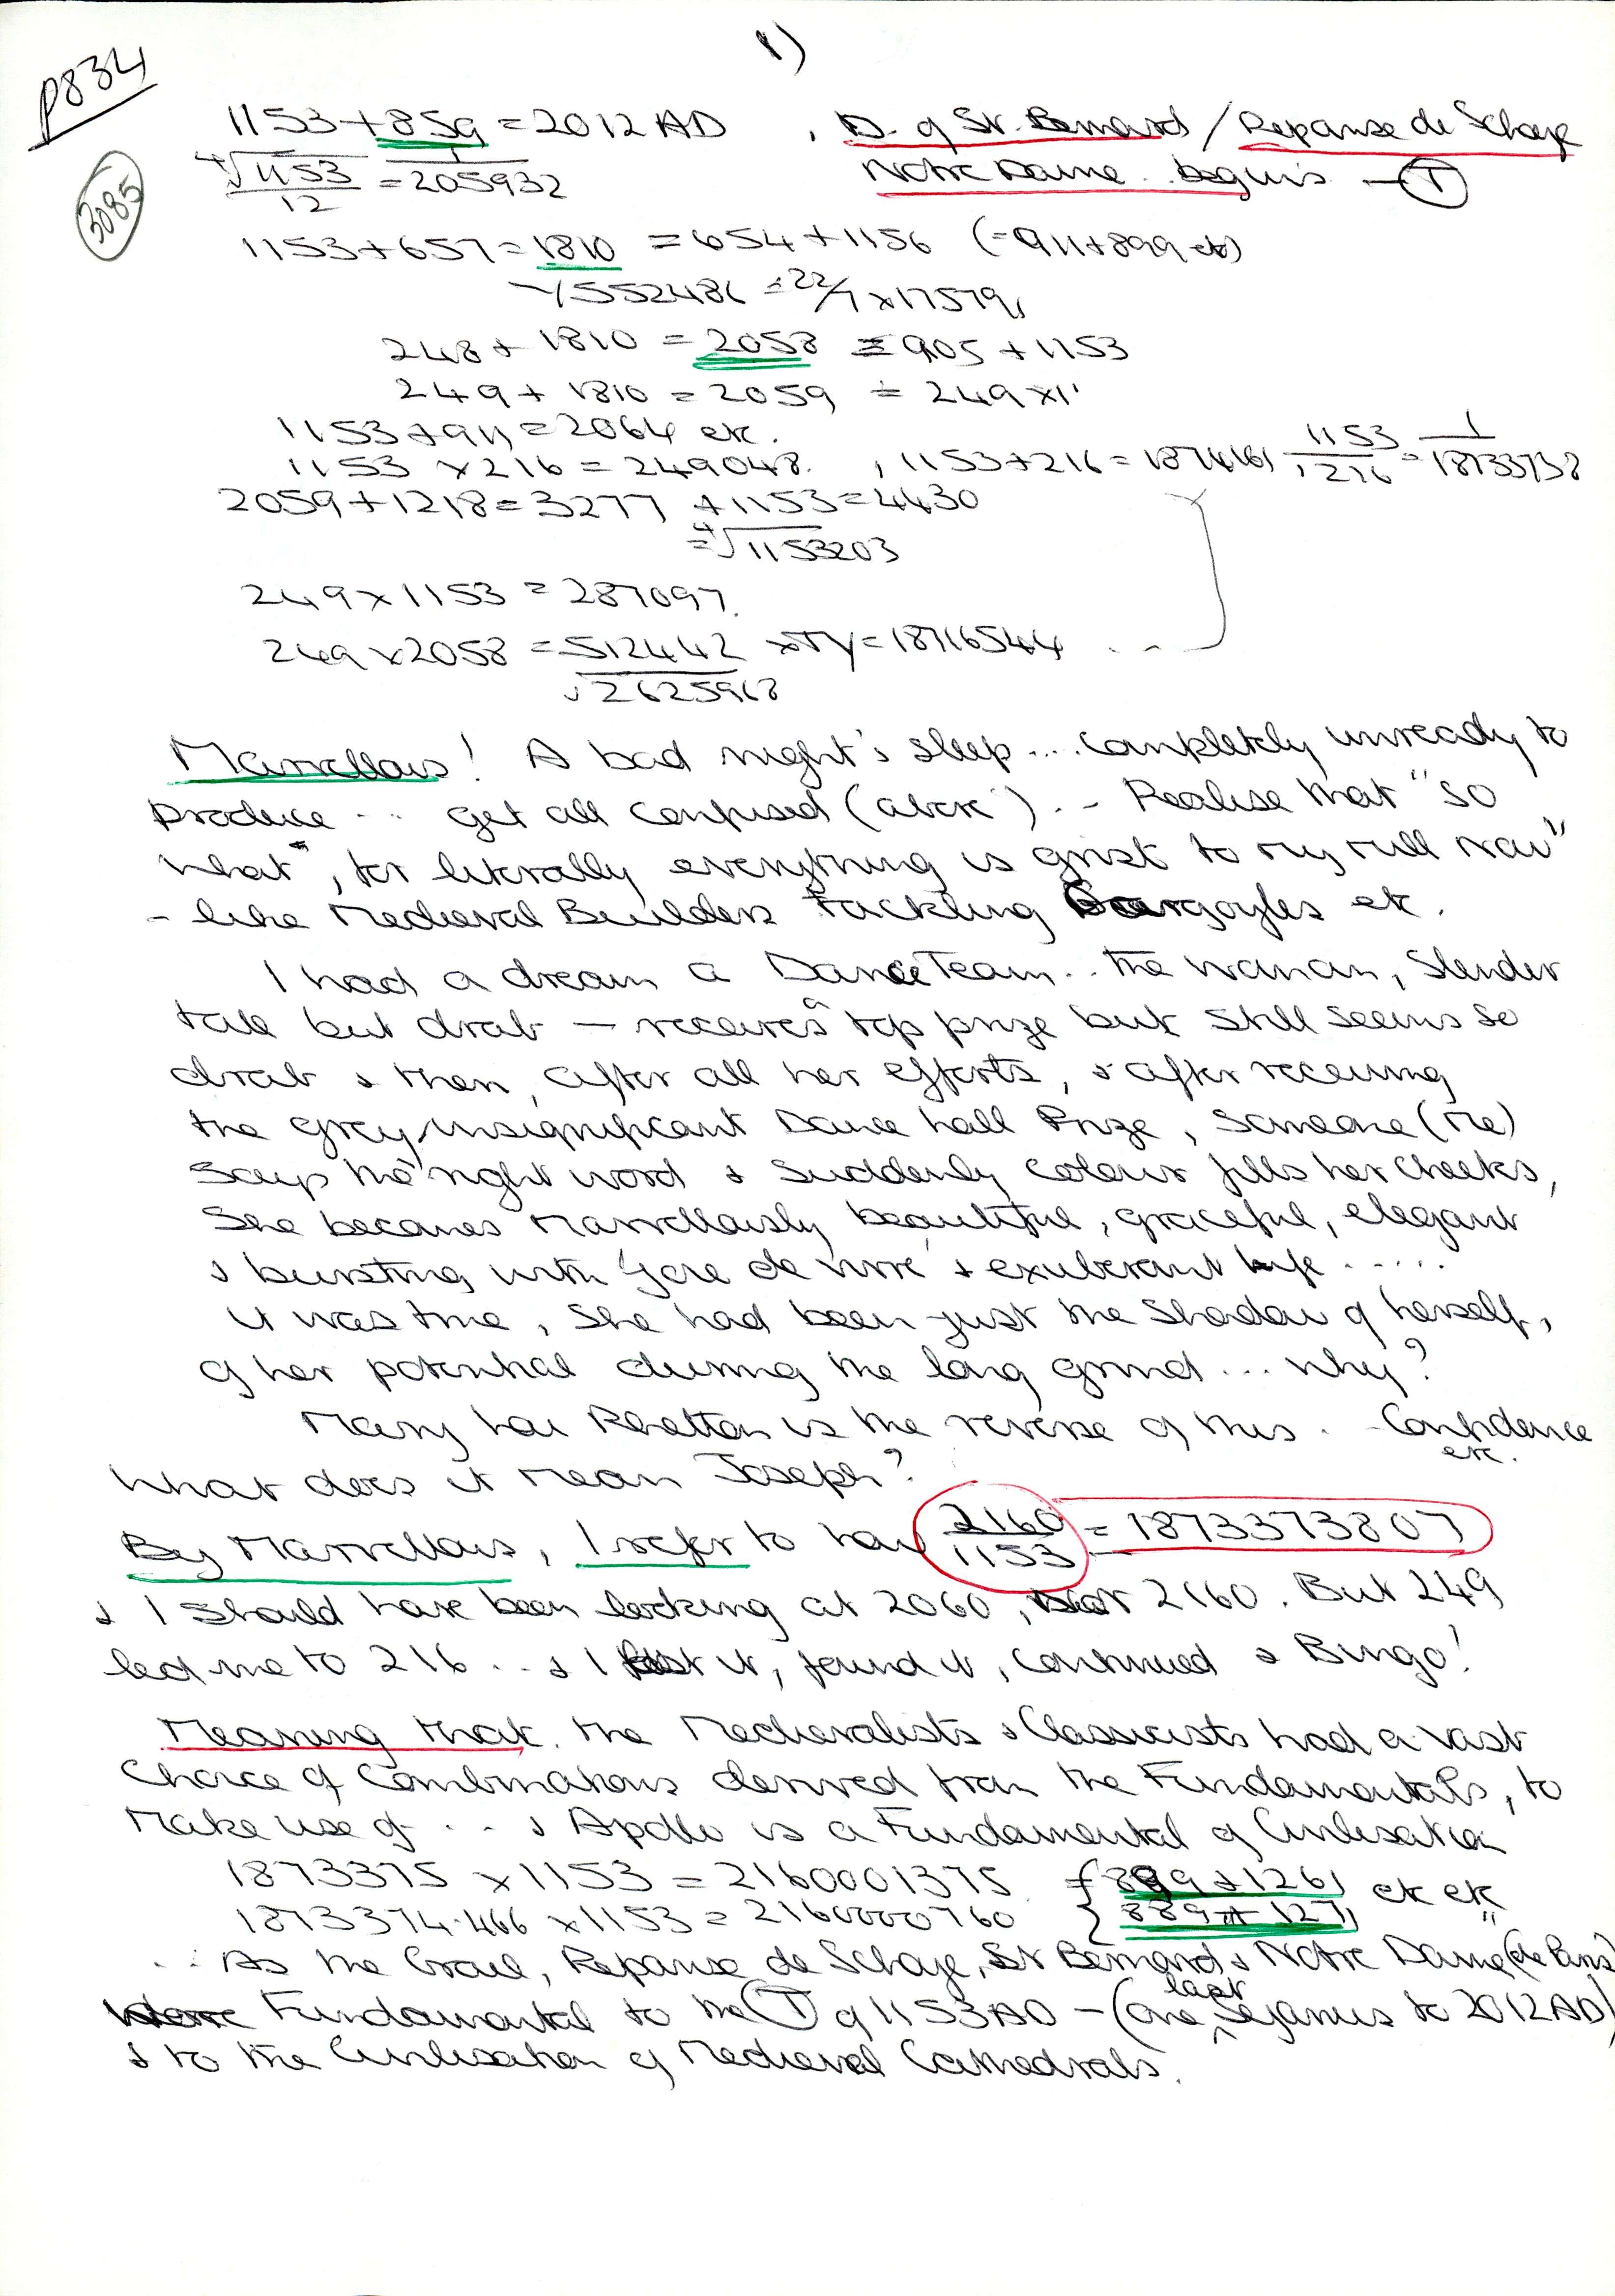 1)
P834
3085
1153+859 = 2012 AD , D. of St. Bernard / Repanse de Schoye
⁴√1153 / 12 = 1/205932 Notre Dame .. begins — (T)
1153+657 = 1810 = 654+1156 (=911+899 etc)
√552486 = 22/7 × 17579,
248 + 1810 = 2058 = 905 + 1153
249 + 1810 = 2059 = 249 × 1'
1153+911 = 2064 etc.
1153 × 216 = 249048. , 1153+216 = 1874161 1153/1216 = 1/18733738
2059+1218 = 3277 +1153 = 4430
= ⁴√1153203
249 × 1153 = 287097.
249 × 2058 = 512442 × = 18716544 ...
√262596,8
Marvellous! A bad night's sleep .... completely unready to
produce ... get all confused (above) .. Realise that "so
what", for literally everything is grist to my mill now"
- like Medieval Builders tackling Gargoyles etc.
I had a dream a Dance Team .. The woman, slender
tall but drab — receives a top prize but still seems so
drab & then, after all her efforts, & after receiving
the grey, insignificant Dance hall Prize, someone (Me)
says the right word & suddenly colour fills her cheeks,
She becomes marvellously beautiful, graceful, elegant
& bursting with 'Joie de Vivre' & exuberant life .....
It was true, She had been just the Shadow of herself,
of her potential during the long grind ... why?
Mary Lou Rhetton is the reverse of this. - Confidence
etc.
What does it mean Joseph?
By Marvellous, I refer to how 2160/1153 = 1873373807
& I should have been looking at 2060, not 2160. But 249
led me to 216 ... & I lost it, found it, continued & Bingo!
Meaning that the Medievalists & Classicists had a vast
Choice of Combinations derived from the Fundamentals, to
Make use of ... & Apollo is a Fundamental of Civilisation
1873375 × 1153 = 2160001375 {899+126, etc etc
1873374.466 × 1153 = 21600000760 {889+127, "
∴ As the Grail, Repanse de Schoye, St Bernard & Notre Dame (de Paris)
were Fundamental to the (T) of 1153 AD — (one last Sejanus to 2012 AD)
& to the Civilisation of Medieval Cathedrals.